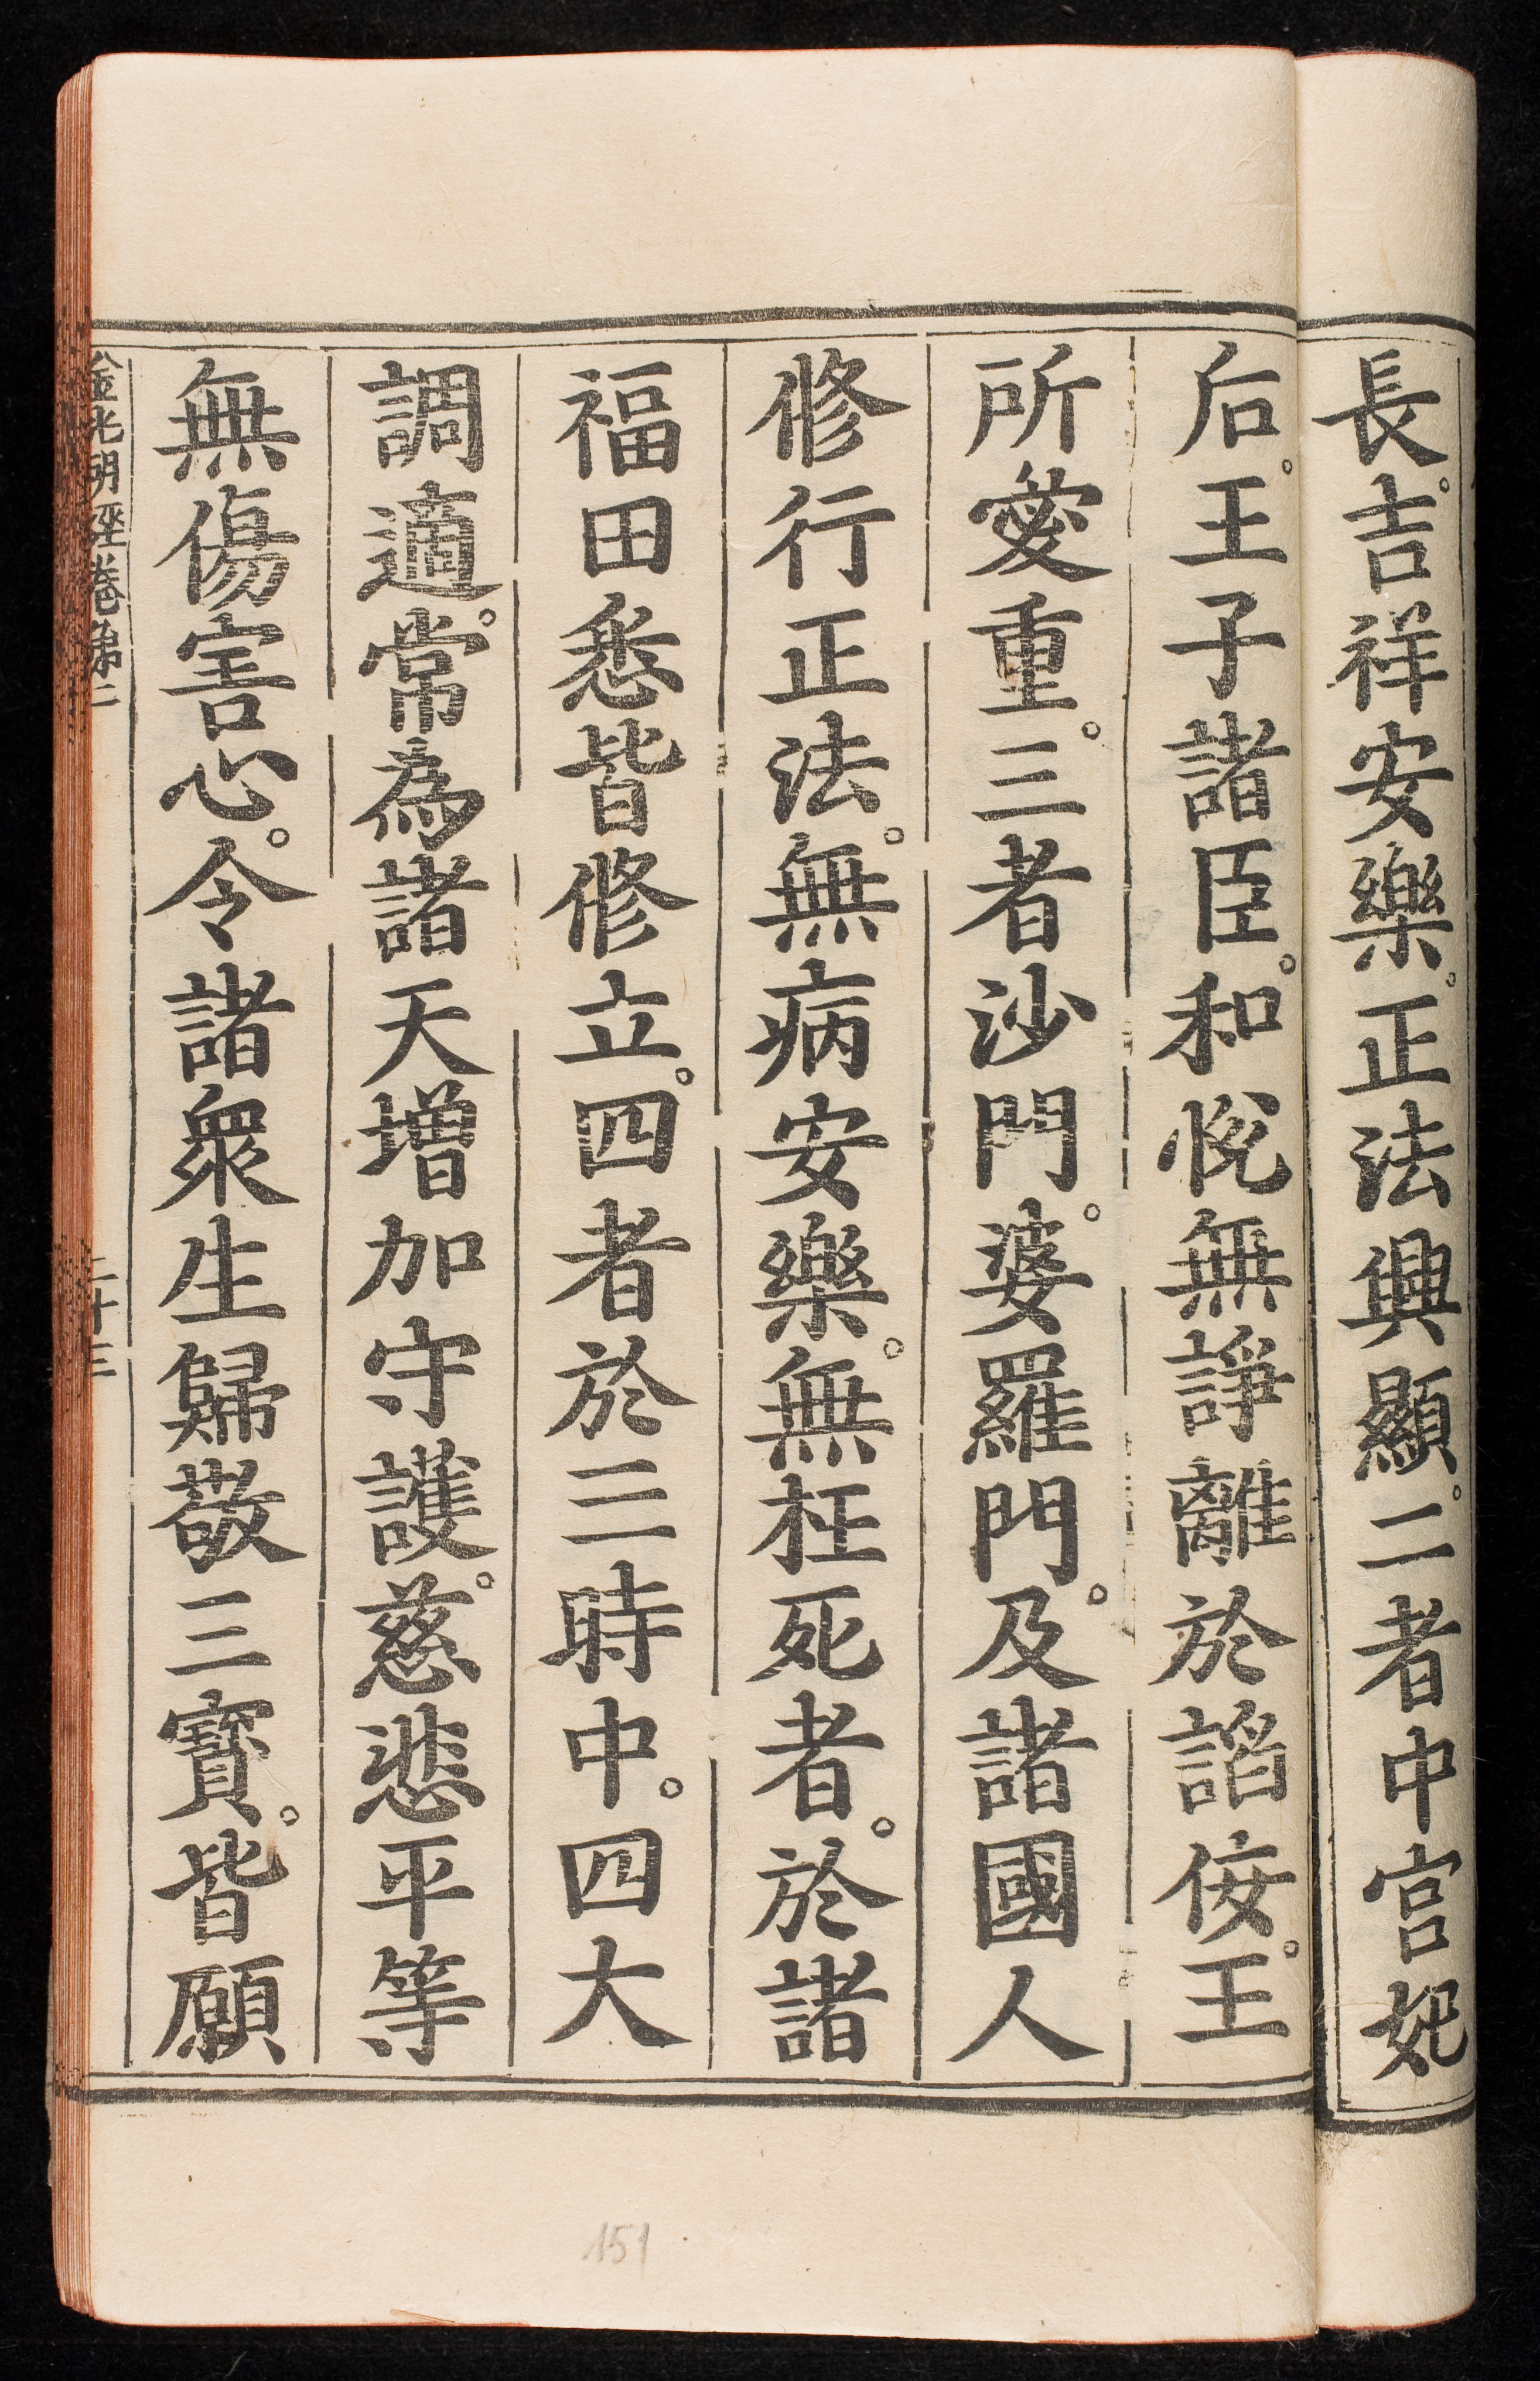 長。吉祥安樂。正法興顯。二者中宮妃
后。王子諸臣。和悅無諍離於諂佞。王
所愛重。三者沙門。婆羅門。及諸國人
修行正法。無病安樂。無枉死者。於諸
福田悉皆修立。四者於三時中。四大
調適。常為諸天增加守護。慈悲平等
無傷害心。令諸眾生歸敬三寶。皆願
金光明經卷第二 二十三
151